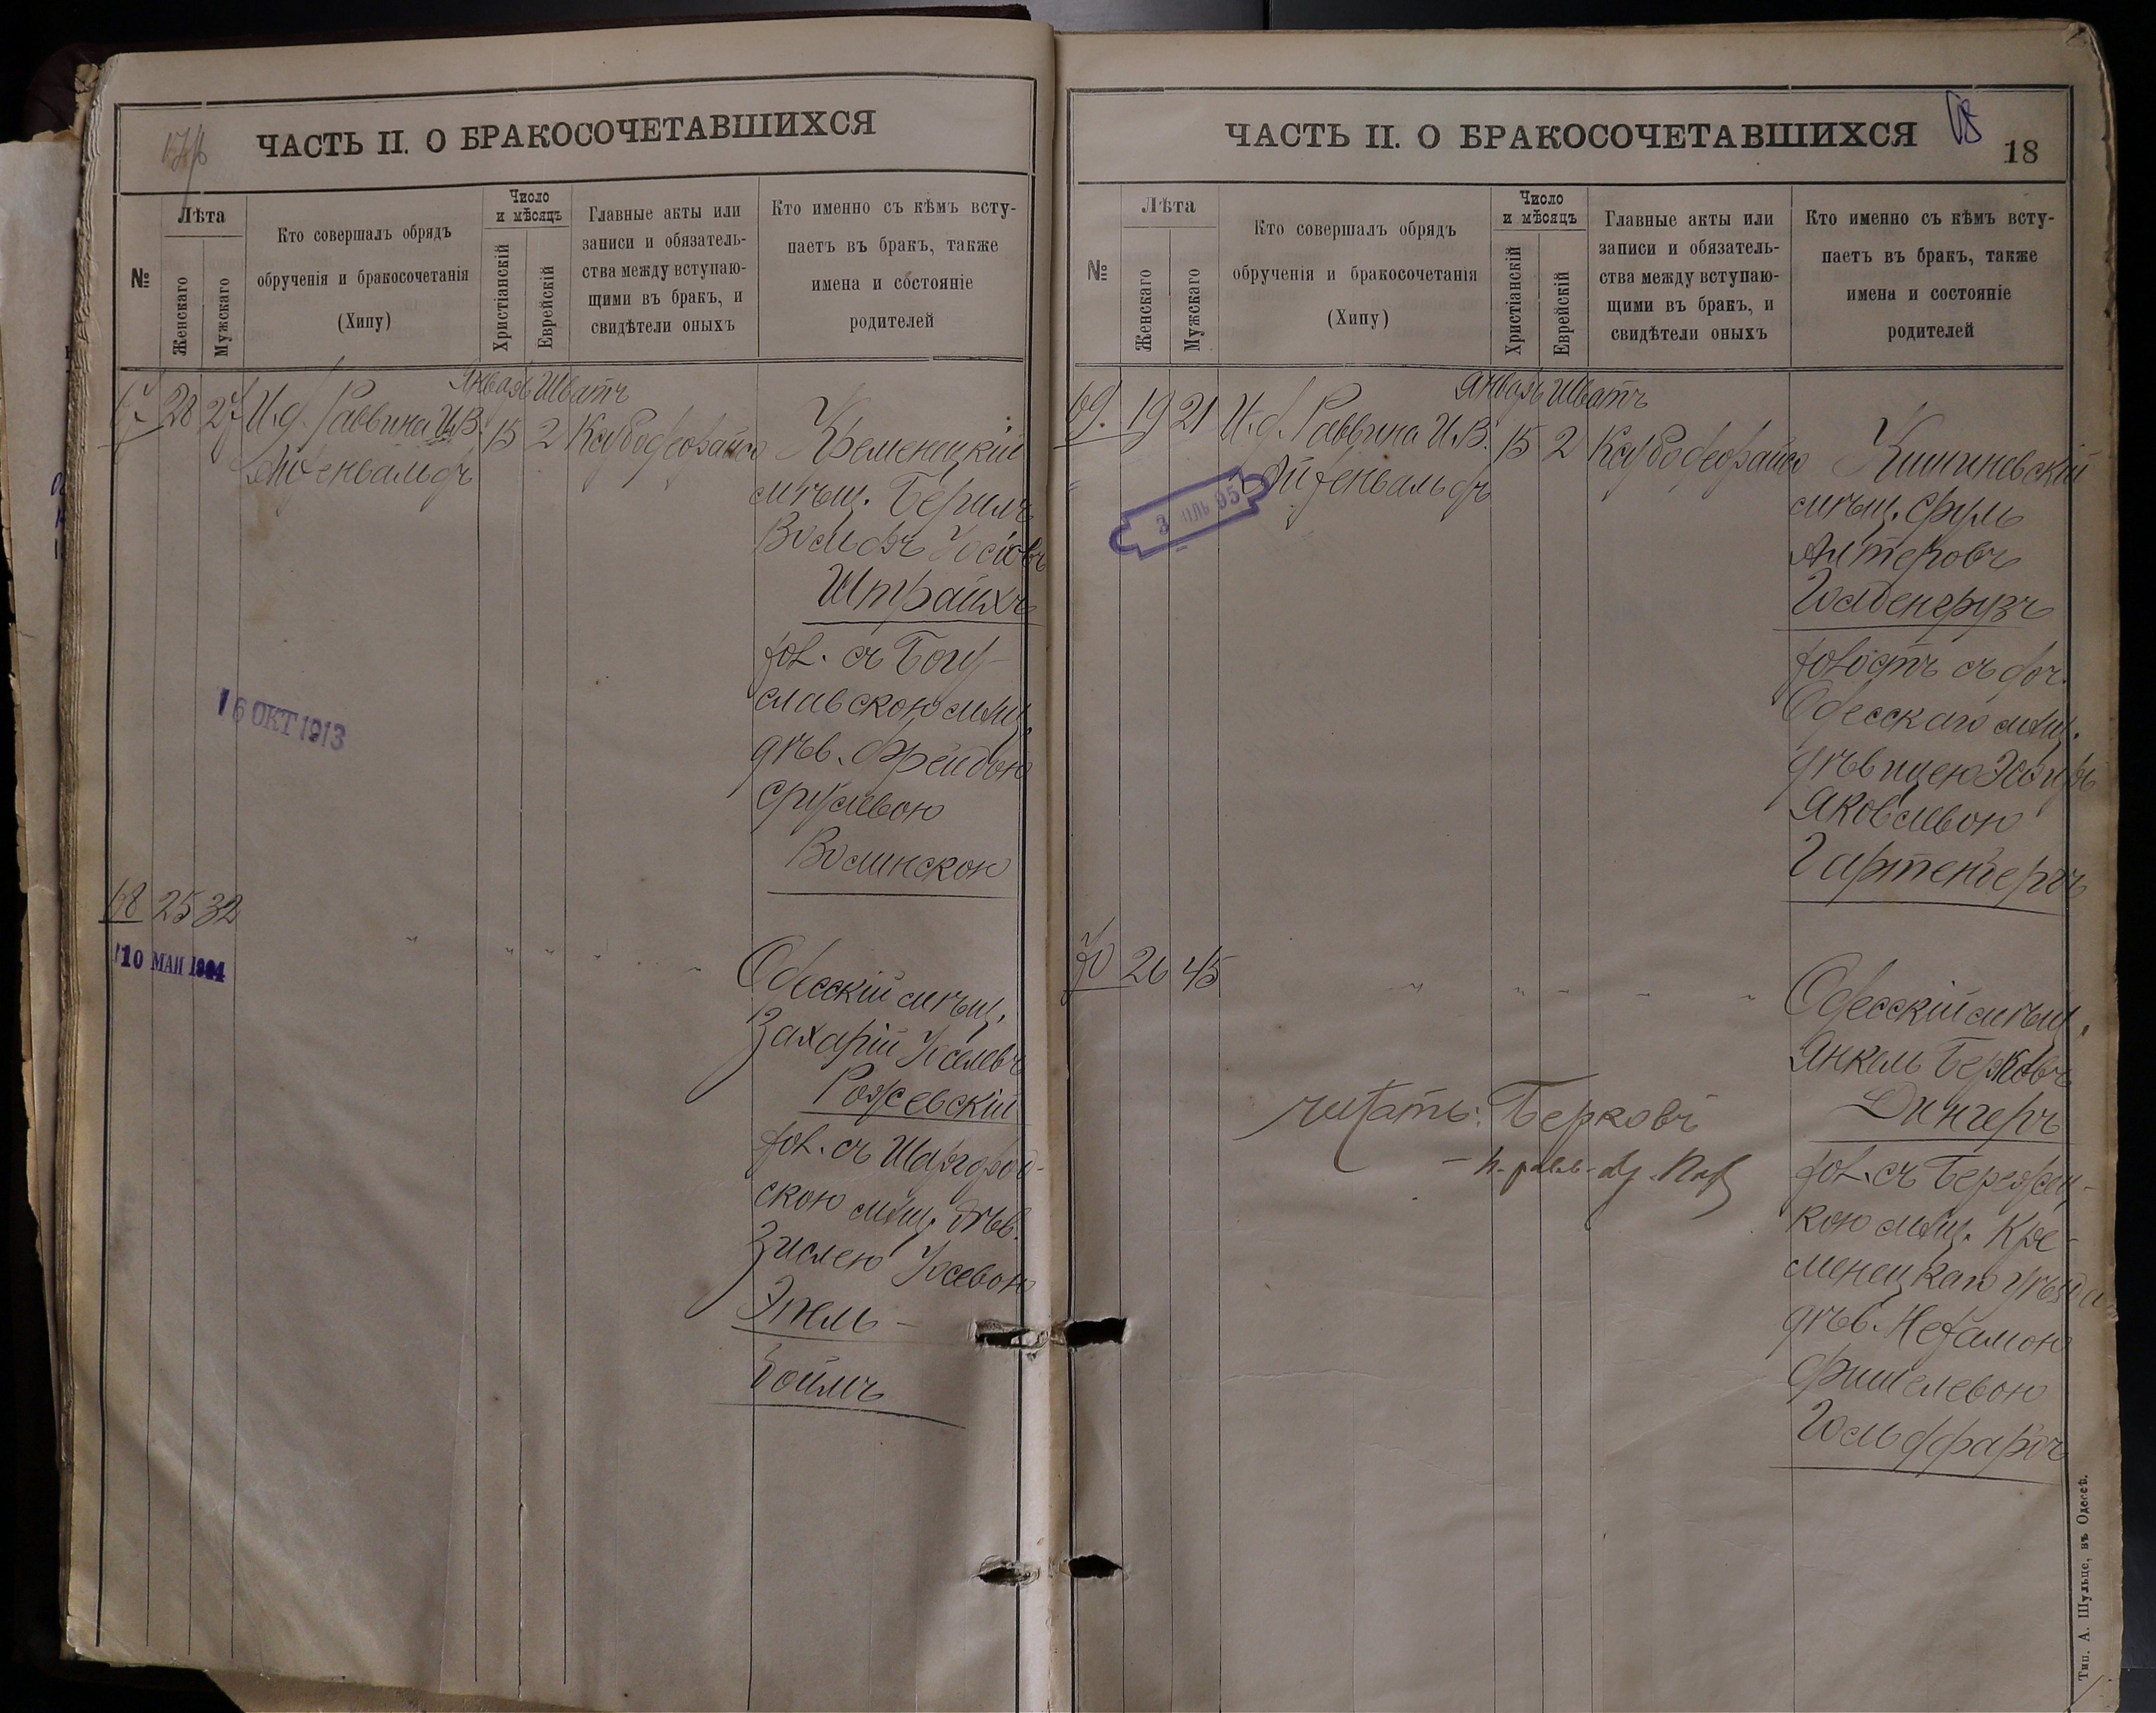 ЧАСТЬ II. О БРАКОСОЧЕТАВШИХСЯ
№
Лѣта
Женскаго
Мужскаго
Кто совершалъ обрядъ
обрученія и бракосочетанія
(Хипу)
Число
и мѣсяцъ
Христіанскій
Еврейскій
Главные акты или
записи и обязатель-
ства между вступаю-
щими въ бракъ, и
свидѣтели оныхъ
Кто именно съ кѣмъ всту-
паетъ въ бракъ, также
имена и состояніе
родителей
Январь Шватъ
67 28 27 И. д. Раввина И. В. 15 2
Айзенвальдъ
Кременецкій
мѣщ. Берилъ
Вольфъ Іосіовъ
Штрайхъ
хол. съ Богу-
славскою мѣщ.
дѣв. Фрейдою
Срулевою
Волинскою
16 ОКТ 1913
68 25 32
10 МАИ
Одесскій мѣщ.
Захарій Іоселевъ
Рожевскій
хол. съ Шаргород-
скою мѣщ. дѣв.
Зислею Іосевою
Эпель-
Боймъ
ЧАСТЬ II. О БРАКОСОЧЕТАВШИХСЯ
18
№
Лѣта
Женскаго
Мужскаго
Кто совершалъ обрядъ
обрученія и бракосочетанія
(Хипу)
Число
и мѣсяцъ
Христіанскій
Еврейскій
Главные акты или
записи и обязатель-
ства между вступаю-
щими въ бракъ, и
свидѣтели оныхъ
Кто именно съ кѣмъ всту-
паетъ въ бракъ, также
имена и состояніе
родителей
Январь Шватъ
69. 19 21 И. д. Раввина И. В. 15 2
Айзенвальдъ
Кишиневскій
мѣщ. Сруль
Антеровъ
Гольденгрузъ
холостъ съ доч.
Одесскаго мѣщ.
дѣвицею
Яковлевою
Гартенбергъ
70 26 45
Одесскій мѣщ.
Янкель Берковъ
Дингеръ
хол. съ Бережец-
кою мѣщ. Кре-
менецкаго уѣзда
дѣв. Нехамою
Фишелевою
Гольдфарбъ
читать: Берковъ
Тип. А. Шульце, въ Одессѣ.